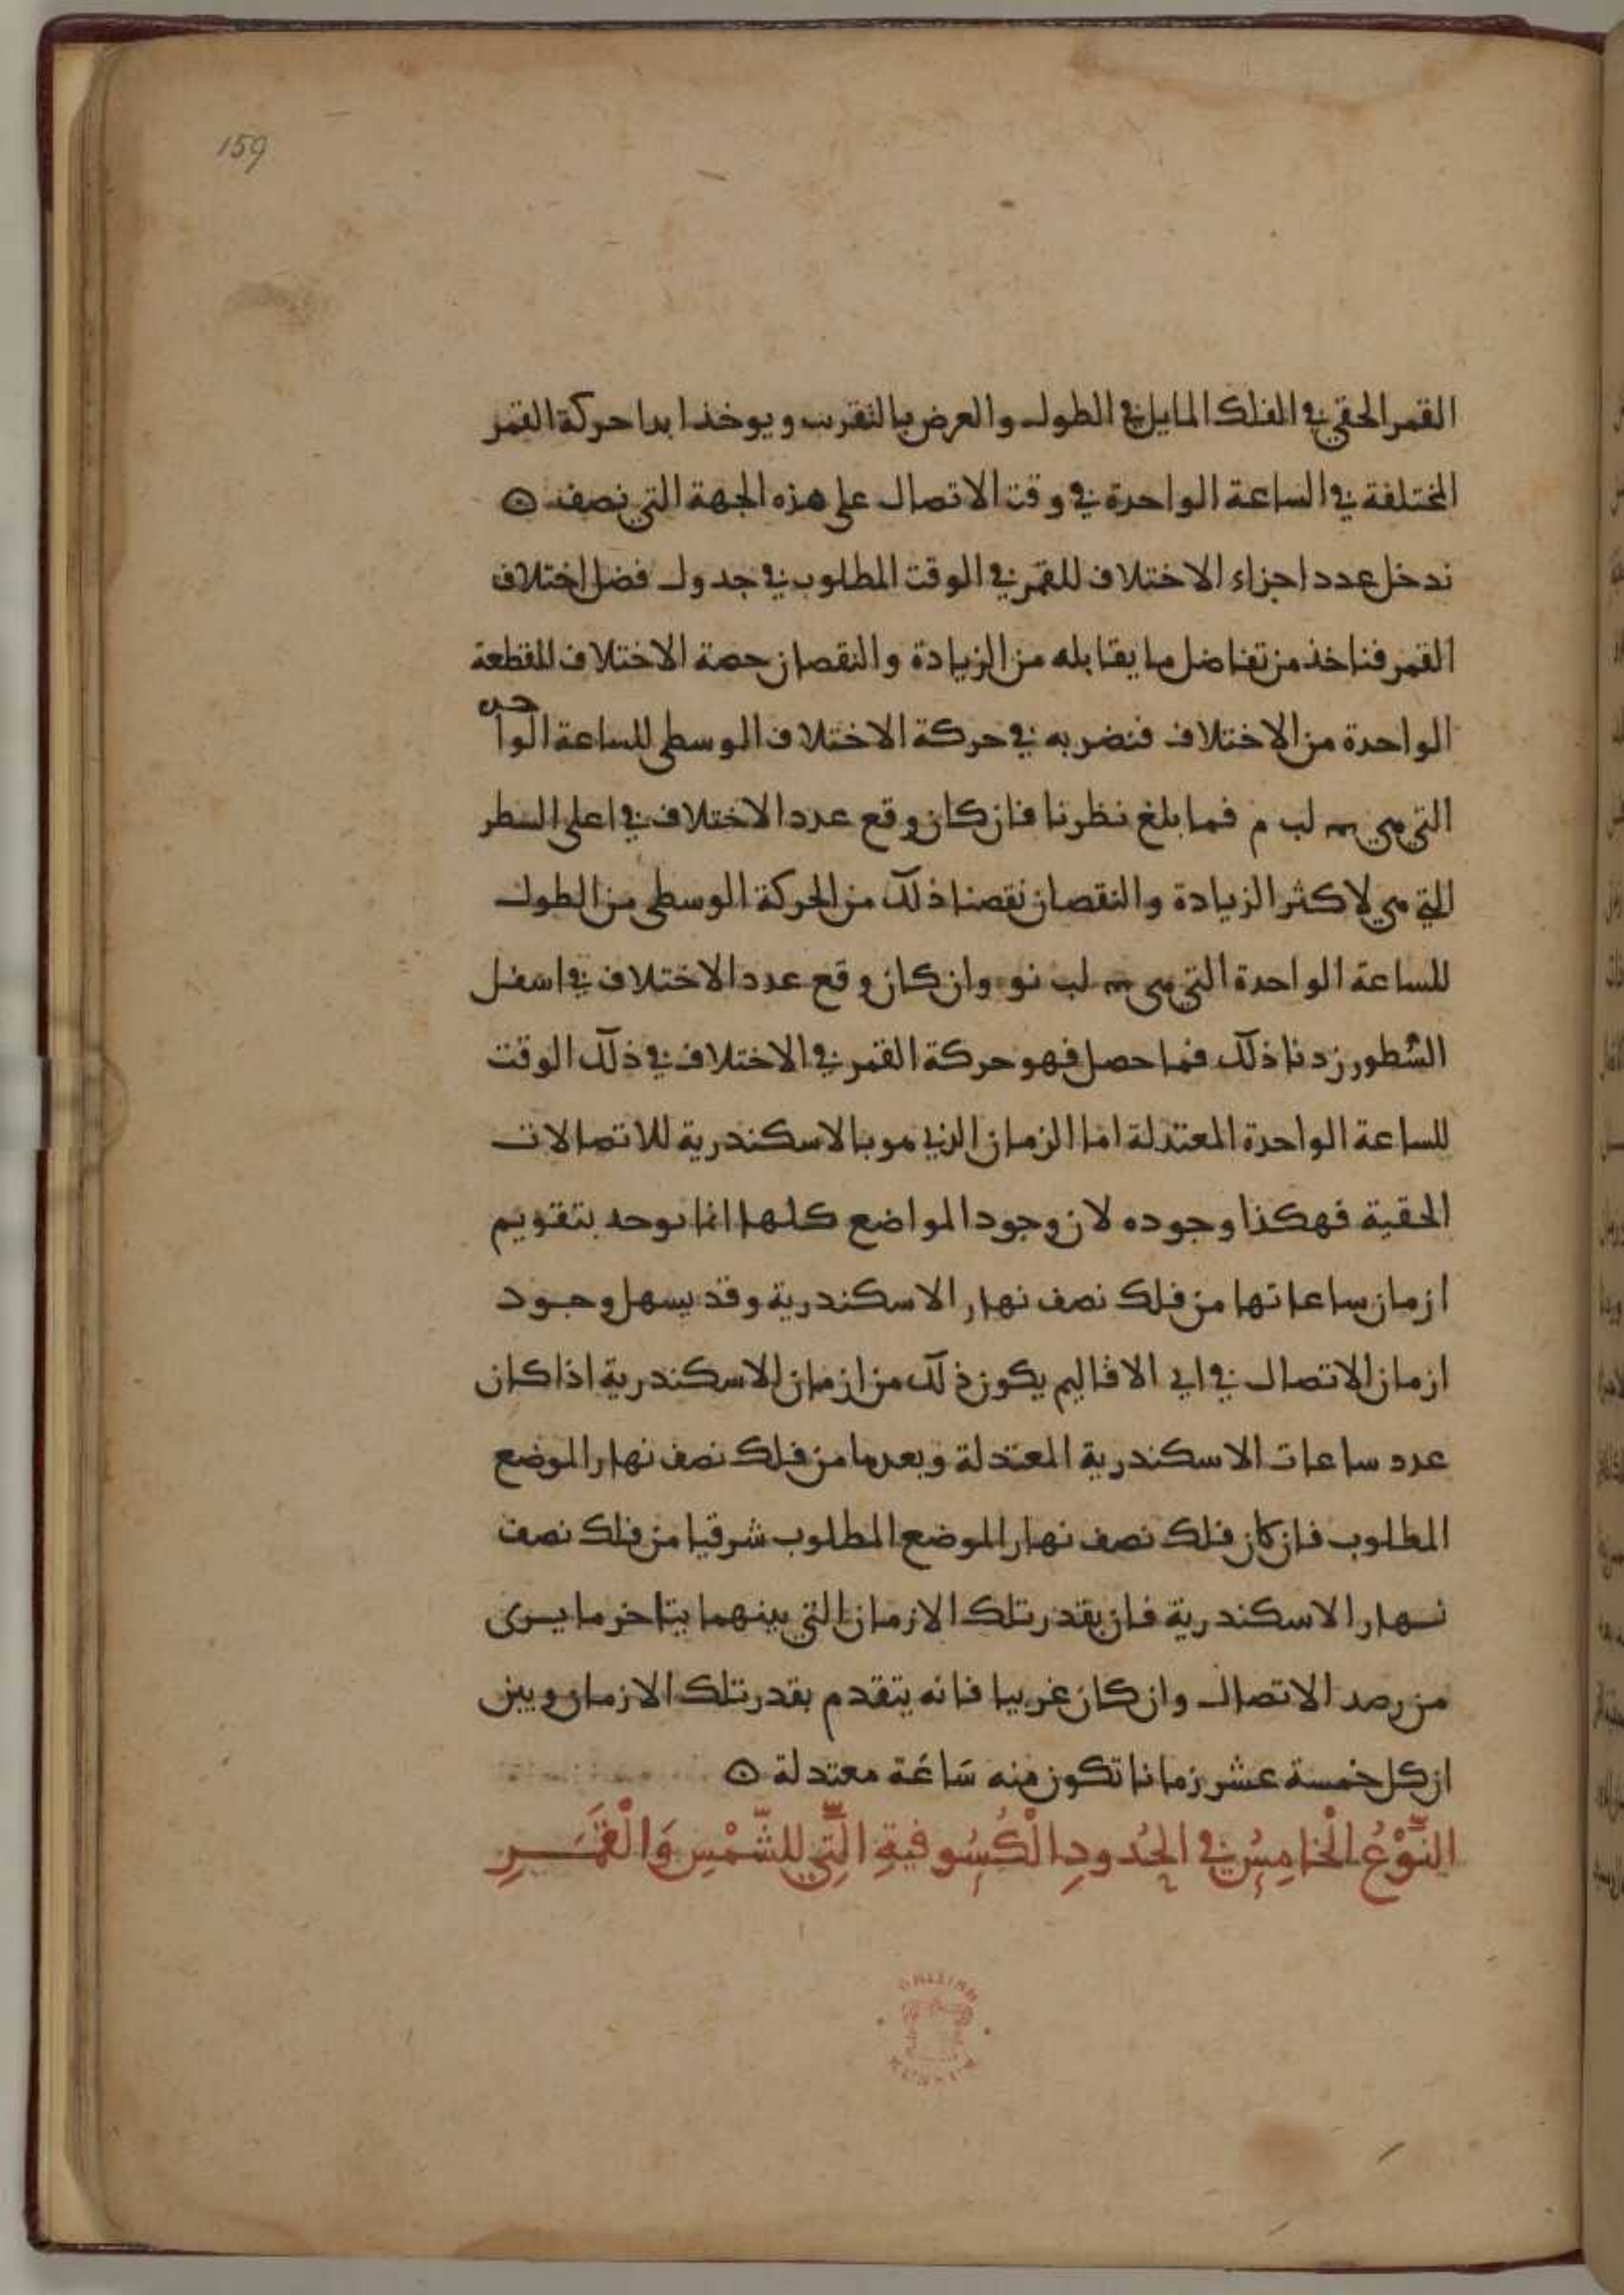 159
القمر الحقي في الفلك المايل في الطول والعرض بالتقريب ويوخذ ابدا حركة القمر
المختلفة في الساعة الواحدة في وقت الاتصال على هذه الجهة التي نصف
ندخل عدد اجزاء الاختلاف للقمر في الوقت المطلوب في جدول فضل اختلاف
القمر فناخذ من تفاضل ما يقابله من الزيادة والنقصان حصة الاختلاف للقطعة
الواحدة من الاختلاف فنضربه في حركة الاختلاف الوسطى للساعة الواحده
التي هي لب م فما بلغ نظرنا فان كان وقع عدد الاختلاف في اعلى السطر
التي هي لاكثر الزيادة والنقصان نقصنا ذلك من الحركة الوسطى من الطول
للساعة الواحدة التي هي لب نو وان كان وقع عدد الاختلاف في اسفل
الشطور زدنا ذلك فما حصل فهو حركة القمر في الاختلاف في ذلك الوقت
للساعة الواحدة المعتدلة اما الزمان الذي هو بالاسكندرية للاتصالات
الحقية فهكذا وجوده لان وجود المواضع كلها انما يوحد بتقويم
ازمان ساعاتها من فلك نصف نهار الاسكندرية وقد يسهل وجود
ازمان الاتصال في اي الاقاليم يكون ذلك من ازمان الاسكندرية اذا كان
عدد ساعات الاسكندرية المعتدلة وبعدها من فلك نصف نهار الموضع
المطلوب فان كان فلك نصف نهار الموضع المطلوب شرقيا من فلك نصف
نهار الاسكندرية فان بقدر تلك الازمان التي بينهما يتاخر ما يرى
من رصد الاتصال وان كان غربيا فانه يتقدم بقدر تلك الازمان وبين
ان كل خمسة عشر زمانا تكون منه سَاعَة معتدلة
النَّوْعُ الْخَامِسُ في الحُدودِ الْكُسُوفيةِ الَّتِي للشَّمْسِ وَالْقَمَرِ